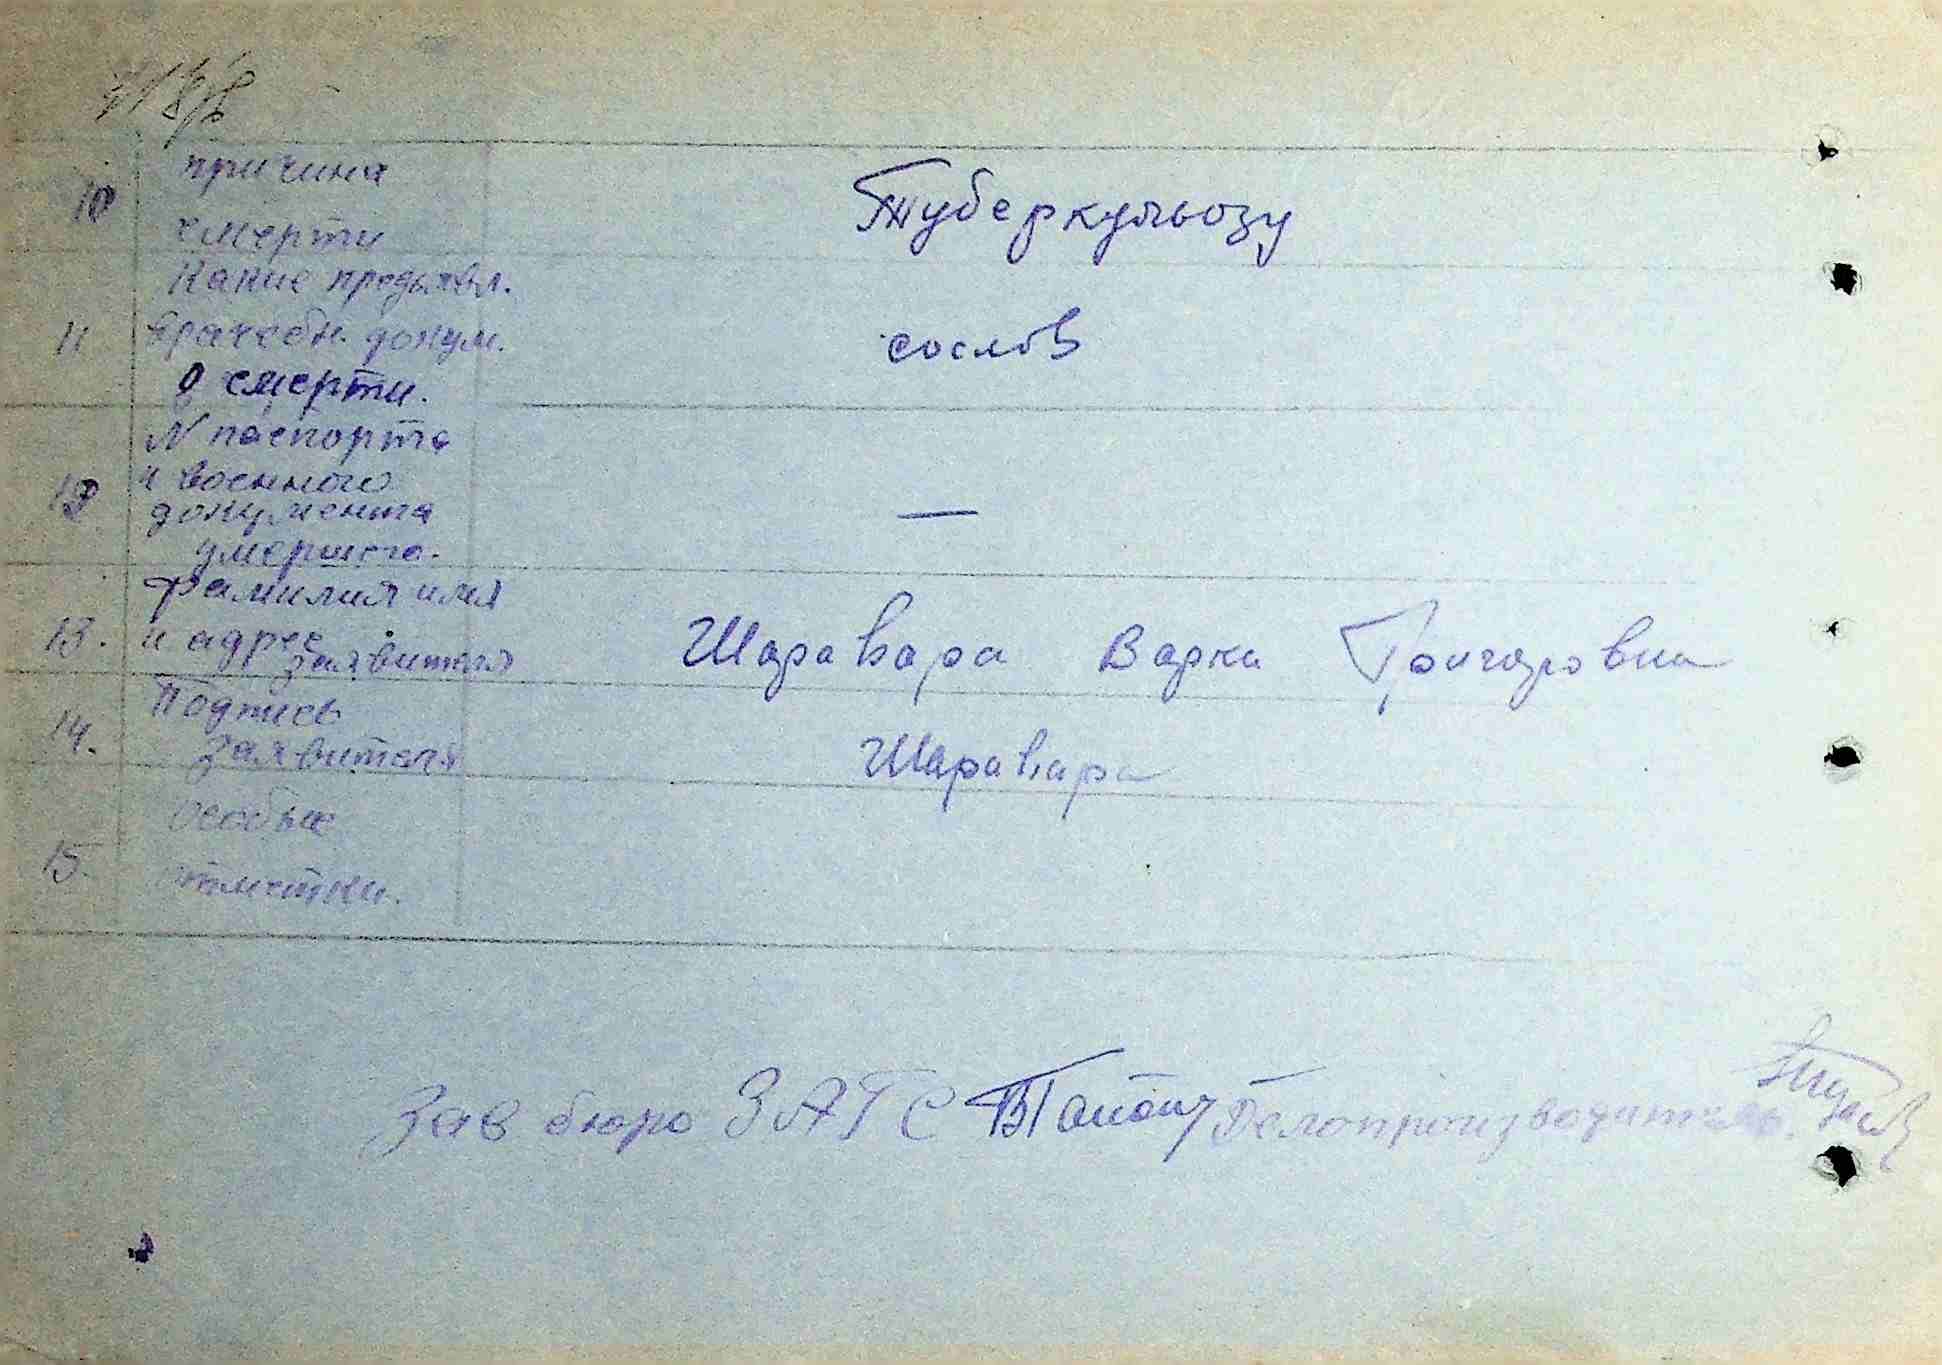 10 причина
смерти
Туберкульозу
Какие предъявл.
11 врачебн. докум.
о смерти.
со слов
N паспорта
и военного
12 документа
умершего.
—
фамилия имя
13. и адрес
заявителя
Шаравара Варка Григоровна
Подпись
14. заявителя
Шаравара
особые
15. отметки.
Зав бюро ЗАГС Делопроизводитель.